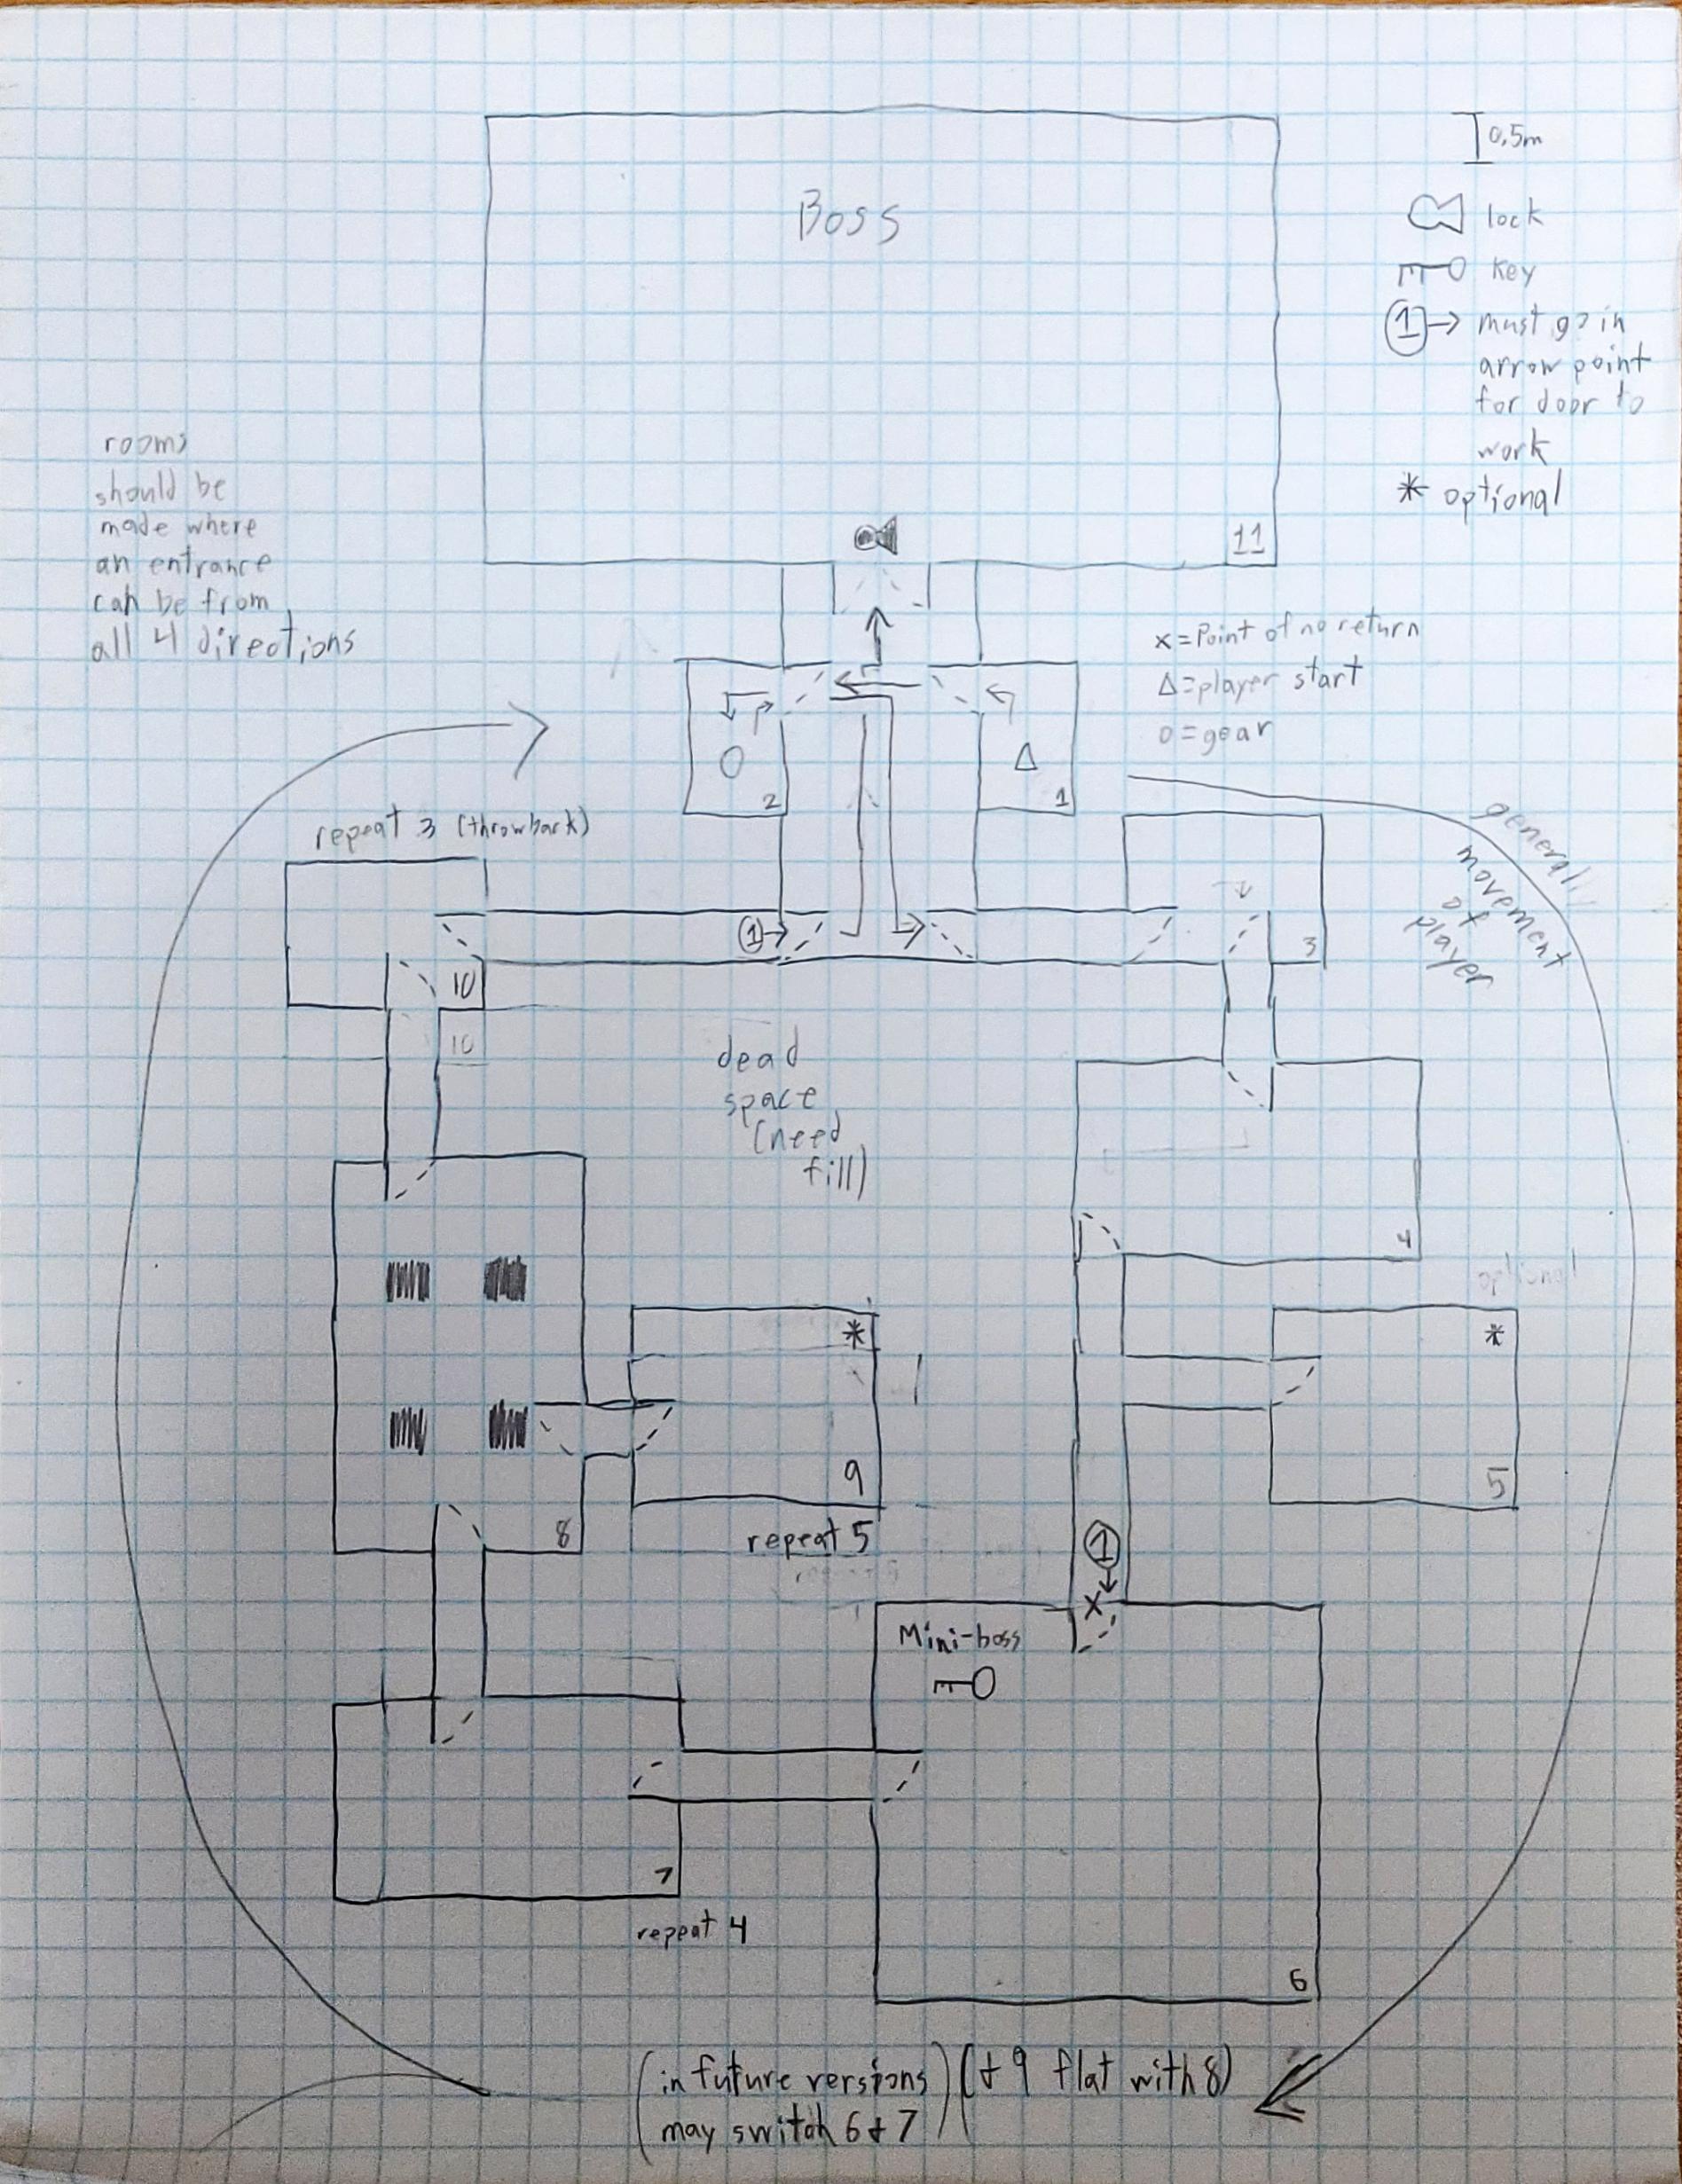 Boss
0.5m
lock
key
1 → must go in
arrow point
for door to
work
* optional
11
rooms
should be
made where
an entrance
can be from
all 4 directions
x = Point of no return
Δ = player start
o = gear
2
1
general
movement
of
player
repeat 3 (throwback)
1
3
10
10
dead
space
(need
fill)
4
optional
*
*
9
5
8
repeat 5
1
X
Mini-boss
7
repeat 4
6
(in future versions
may switch 6 + 7)
(+ 9 flat with 8)